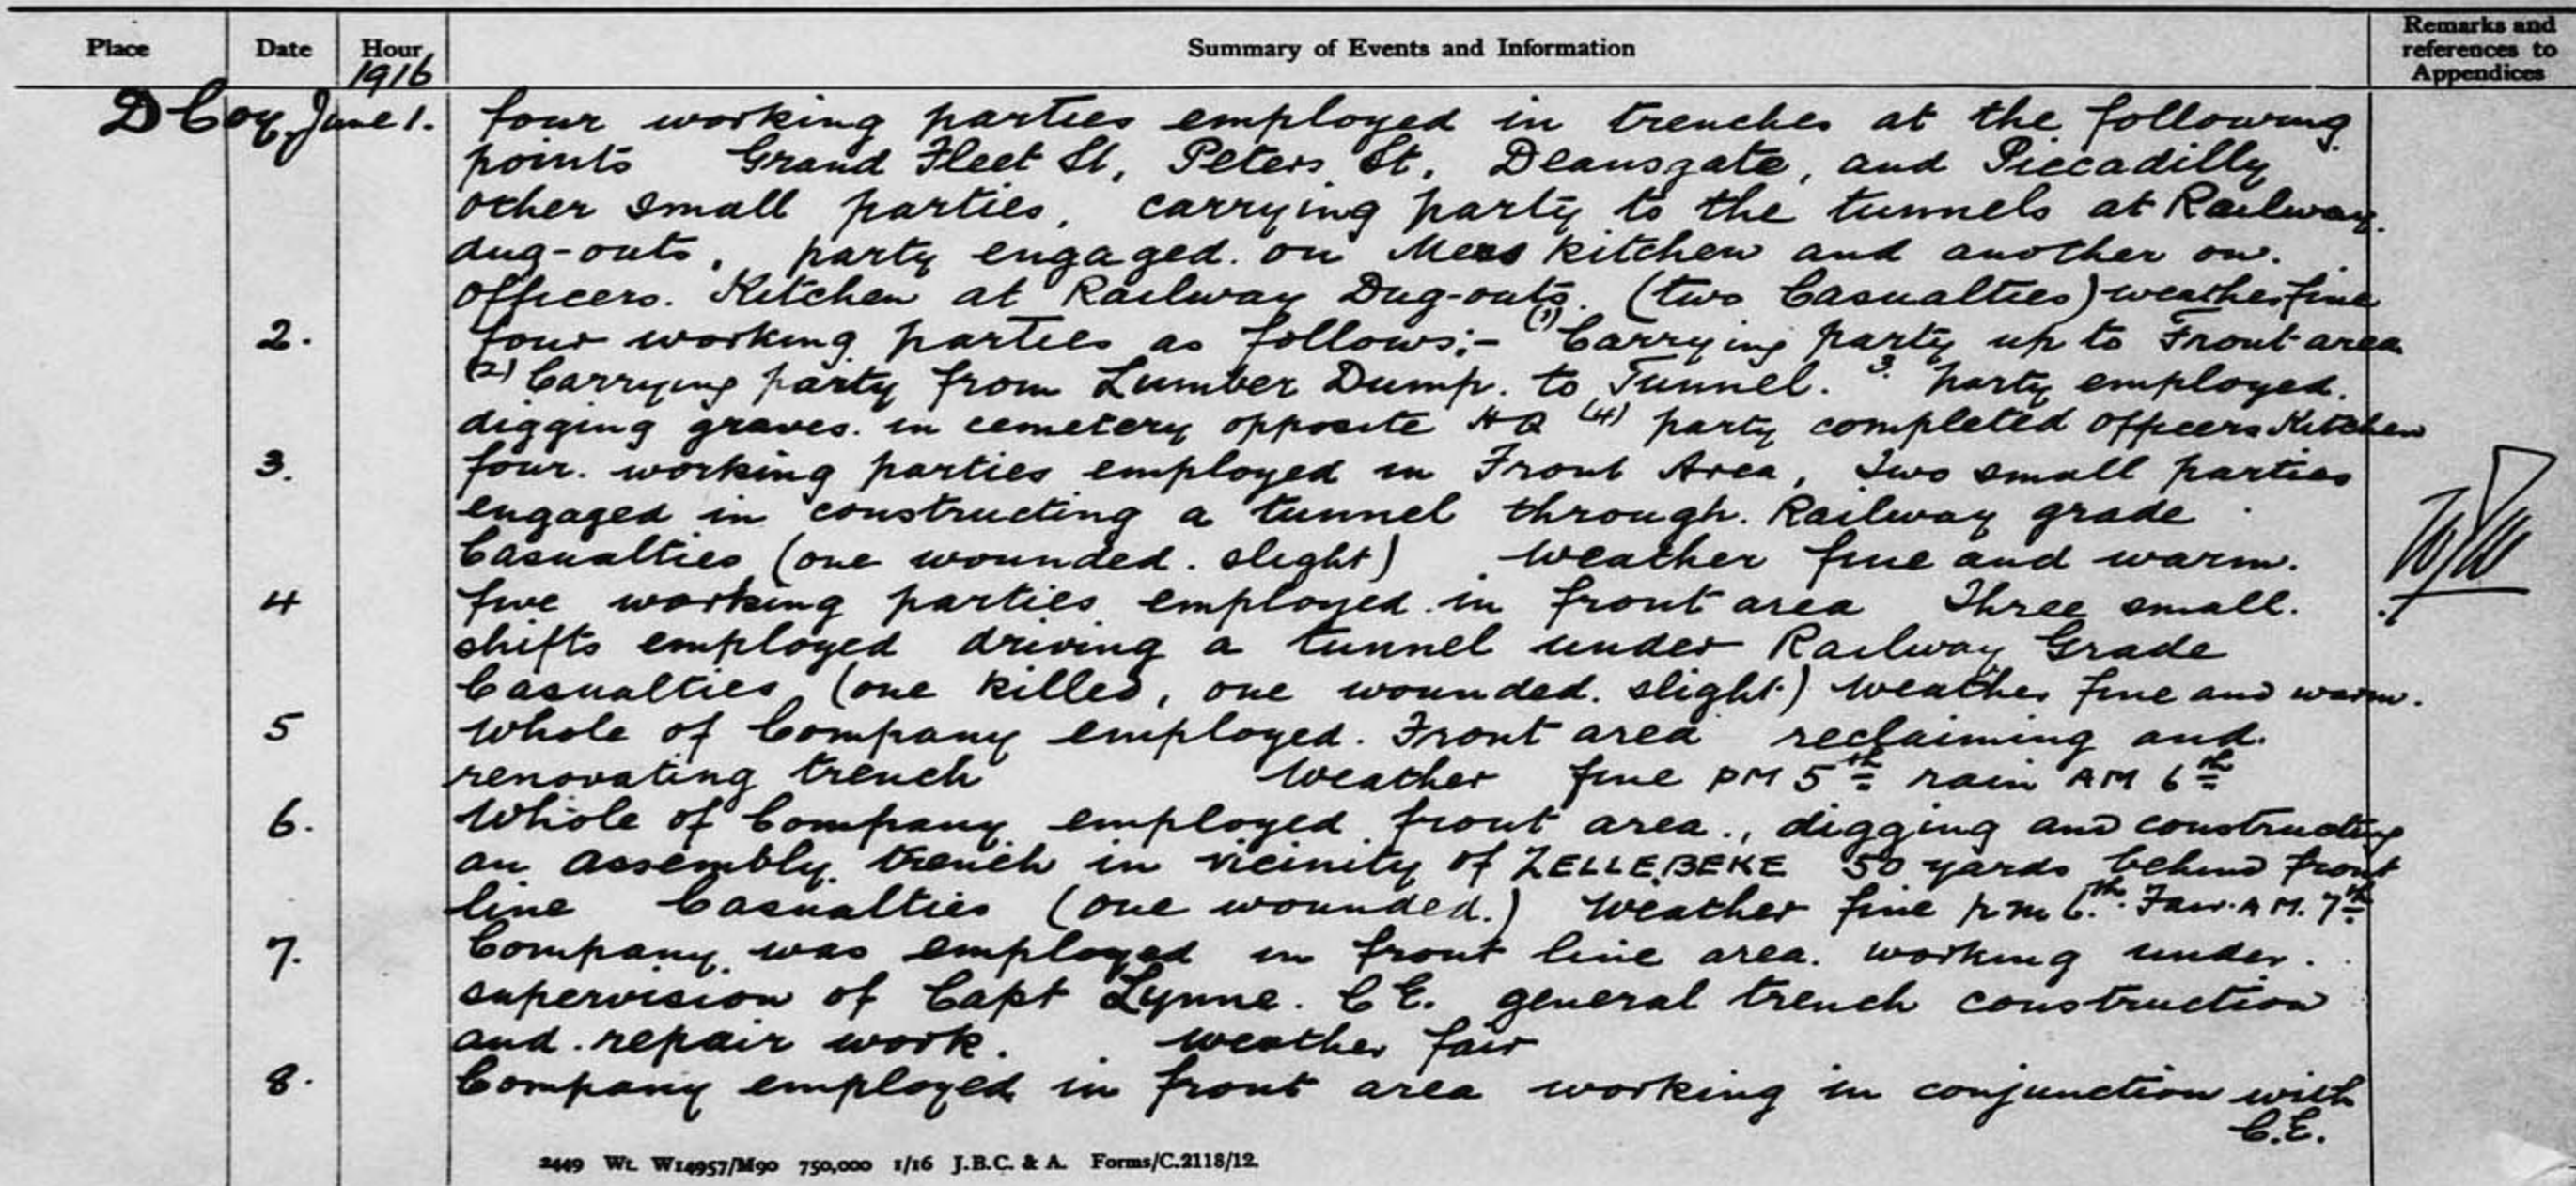 Place Date Hour Summary of Events and Information Remarks and references to Appendices
1916
D Coy June 1. four working parties employed in trenches at the following
points Grand Fleet St, Peters St, Deansgate, and Piccadilly
other small parties, carrying party to the tunnels at Railway
dug-outs, party engaged on Mess kitchen and another on.
officers. Kitchen at Railway Dug-outs. (two Casualties) weather fine
2. four working parties as follows:- (1) Carrying party up to Front area
(2) Carrying party from Lumber Dump. to Tunnel. 3. party employed.
digging graves. in cemetery opposite HQ (4) party completed officers Kitchen
3. four. working parties employed in Front Area, Two small parties
engaged in constructing a tunnel through. Railway grade
Casualties (one wounded. slight) weather fine and warm.
4 five working parties employed in front area Three small.
shifts employed driving a tunnel under Railway Grade
Casualties, (one killed, one wounded. slight) weather fine and warm.
5 Whole of Company employed. Front area reclaiming and.
renovating trench Weather fine PM 5th rain AM 6th
6. Whole of Company employed front area., digging and constructing
an assembly trench in vicinity of ZELLEBEKE 50 yards behind front
line Casualties (one wounded.) Weather fine p.m 6.th Fair. A M. 7th
7. Company was employed in front line area. working under.
supervision of Capt Lynne. C E. general trench construction
and. repair work. weather fair
8. Company employed in front area working in conjunction with
C.E.
2449 Wt. W14957/M90 750,000 1/16 J.B.C. & A. Forms/C.2118/12.